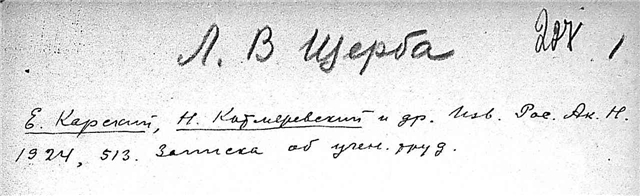 Л. В Щерба 207 1
Е. Карский, Н. Котляревский и др. Изв. Рос. Ак. Н.
1924, 513. Записка об учен. труд.